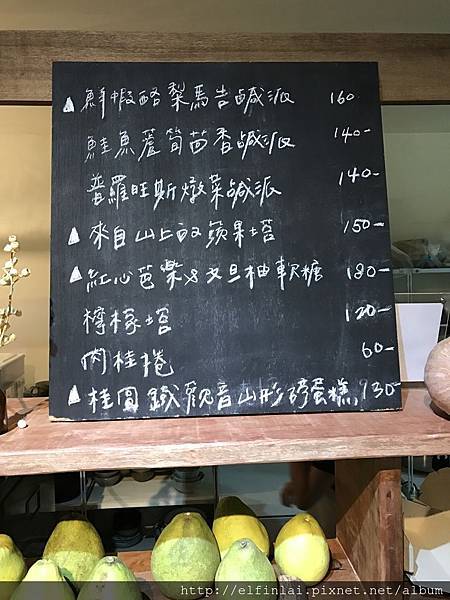 ▲ 鮮蝦酪梨馬告鹹派 160
鮭魚蘆筍茴香鹹派 140-
普羅旺斯燉菜鹹派 140-
▲ 來自山上的蘋果塔 150-
▲ 紅心芭樂&文旦柚軟糖 180-
檸檬塔 120-
肉桂捲 60-
▲ 桂圓鐵觀音山形磅蛋糕, 130-
http://elfinlai.pixnet.net/album